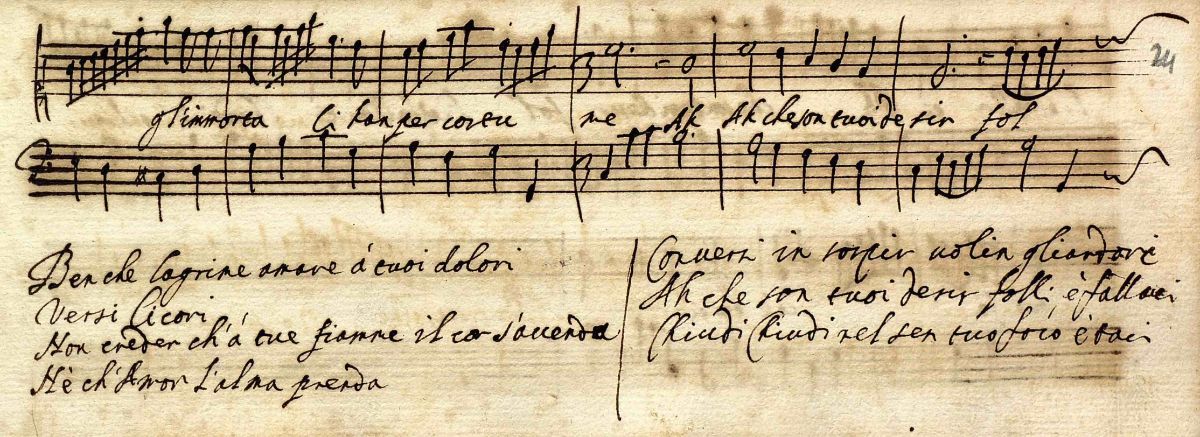 24
gl'immorta li han per costu me Ah Ah che son tuoi desir fol
Benche lagrime amare á tuoi dolori
Versi licori
Non creder ch'á tue fiamme il cor s'accenda
Nè ch'Amor l'alma prenda
Conversi in sospir volin gli ardori
Ah che son tuoi desir folli è fallaci
Chiudi Chiudi nel sen tuo foco è taci